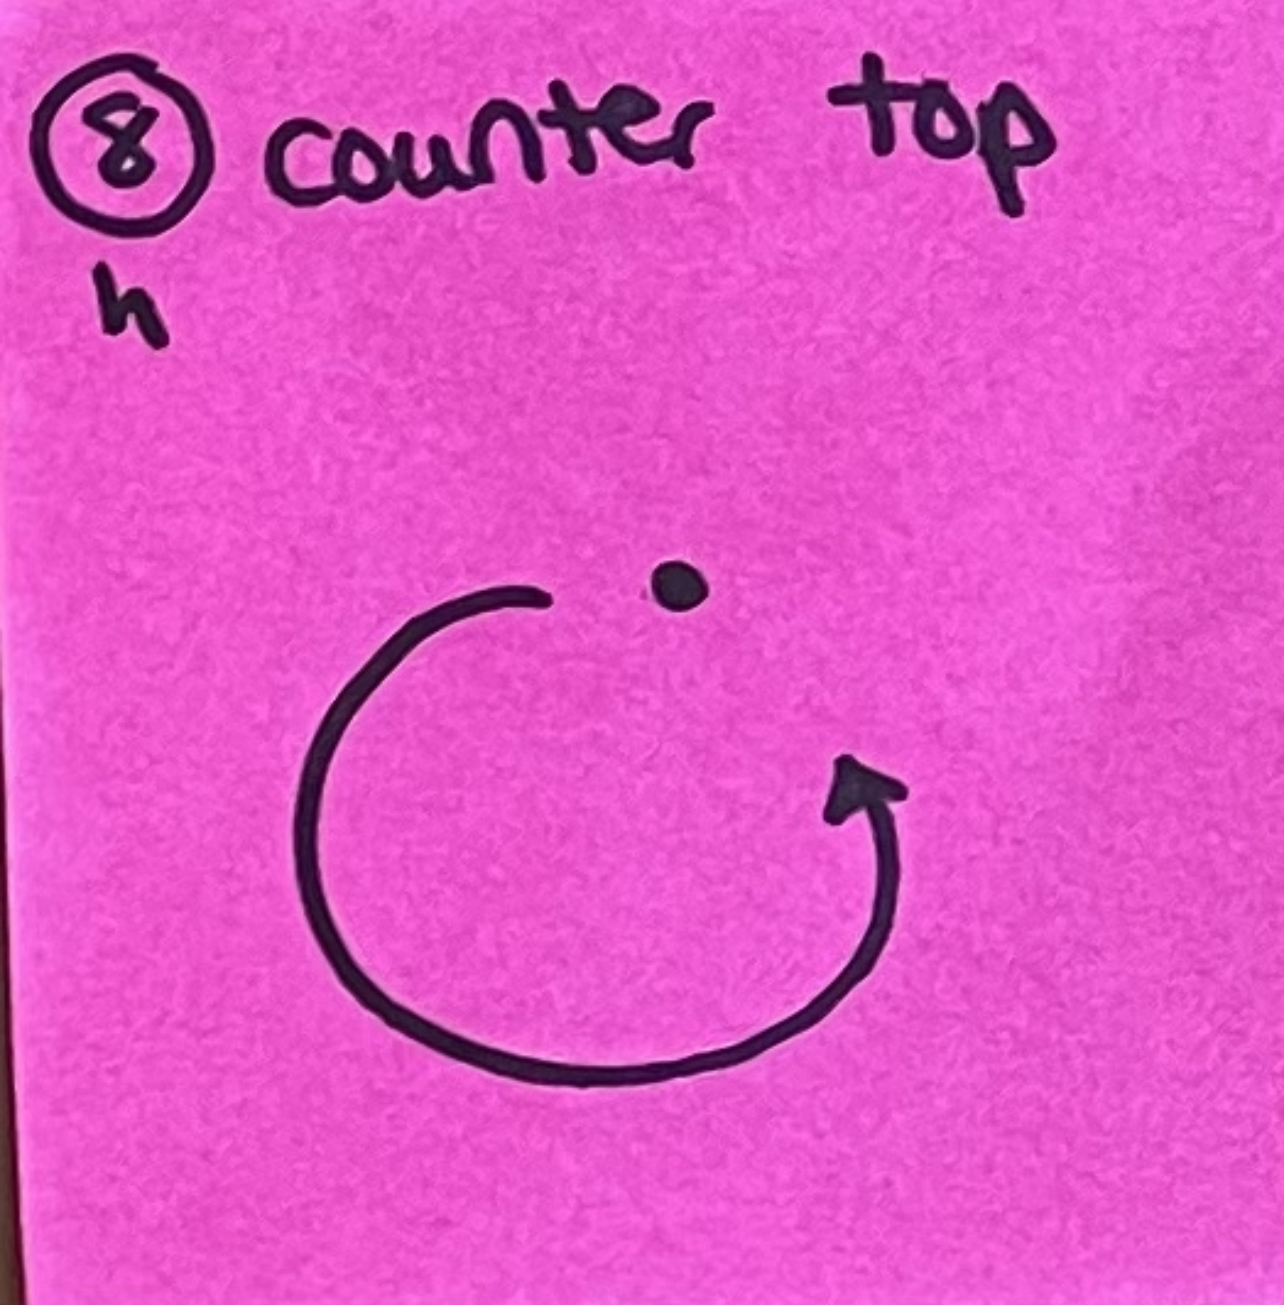 8 counter top
h